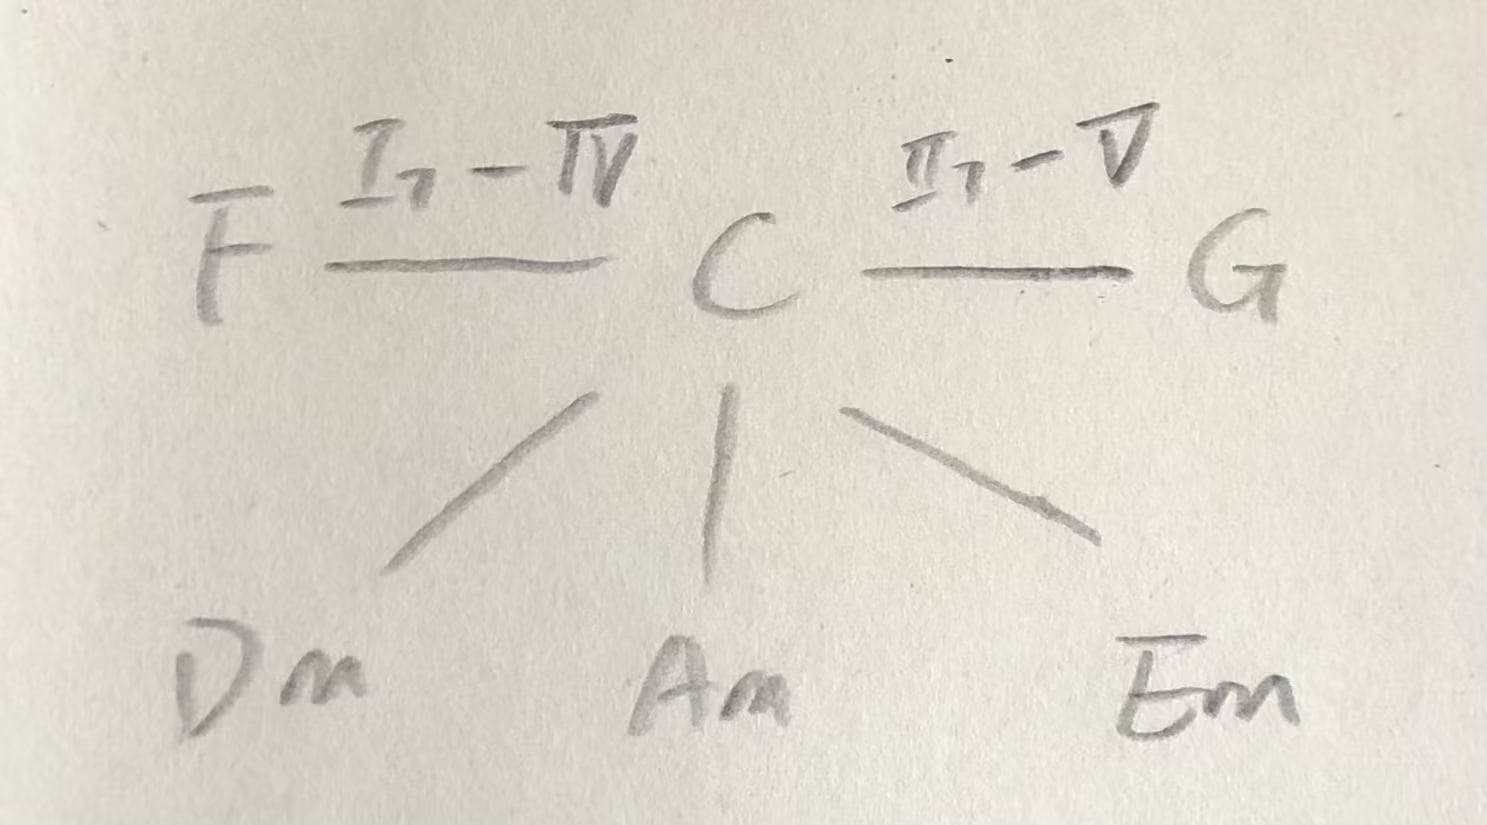 I7 - IV II7 - V
F C G
Dm Am Em